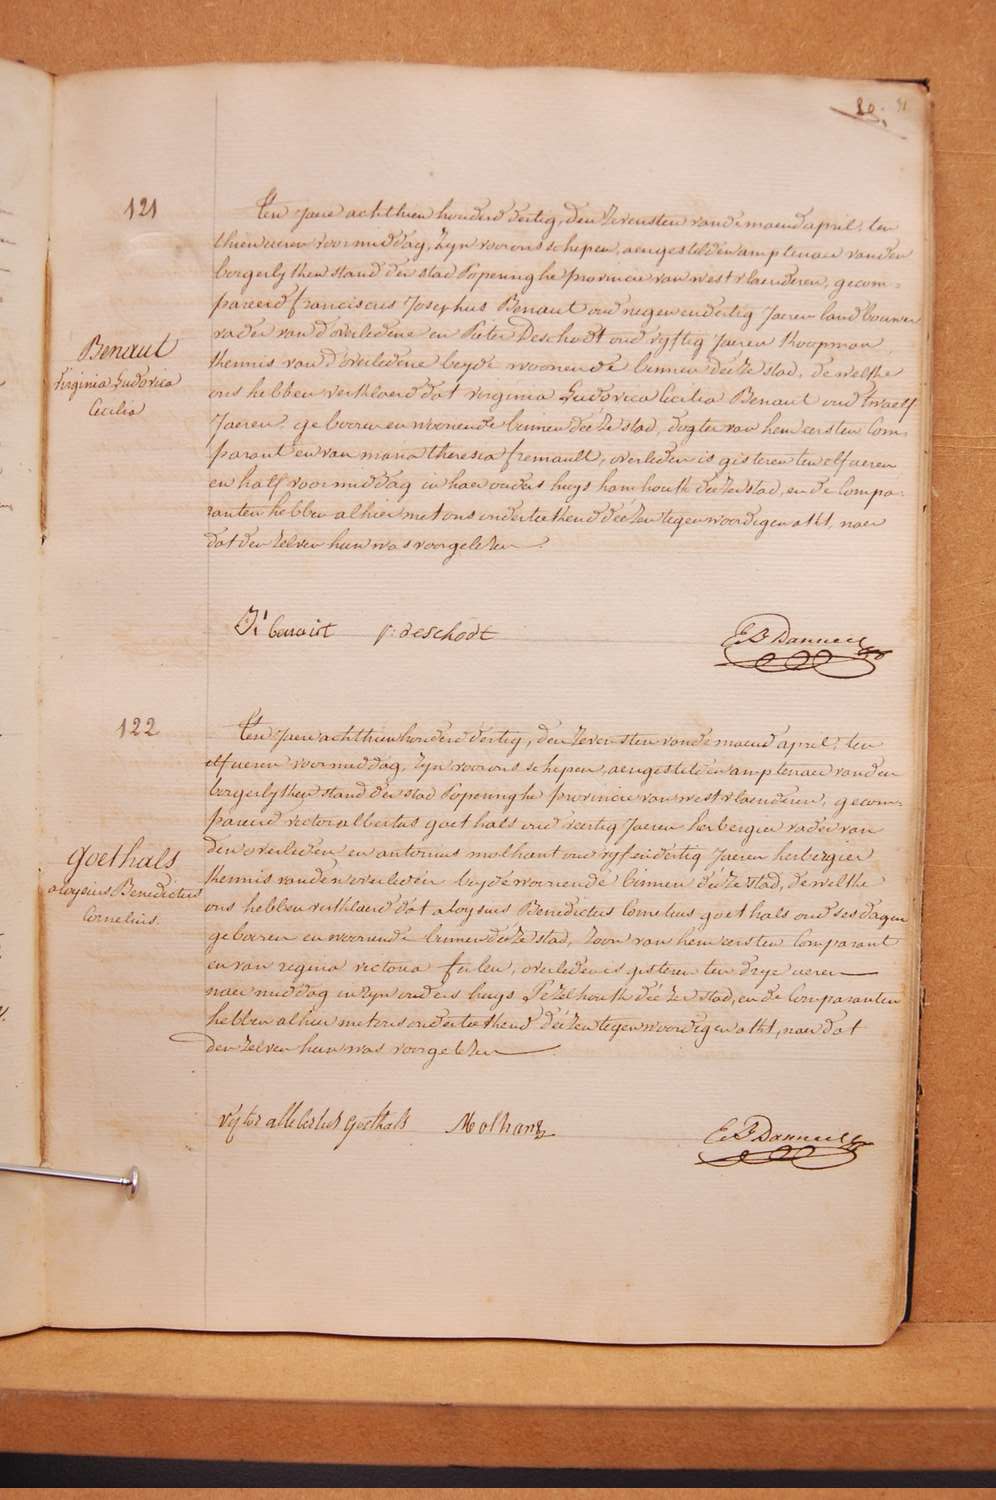 20. 31
121
Benaut
Virginia Ludovica
Cecilia
Ten Jaere achthien honderd dertig, den Zevensten van de maend april, ten
thien ueren voormiddag, Zyn voor ons schepen, aengestelden amptenaer van den
borgerlyken stand der stad Poperinghe provincie van westvlaenderen, gecom-
pareerd franciscus Josephus Benaut oud negenendertig Jaeren landbouwer
vader van d'overledene en Pieter Deschodt oud vyftig Jaeren Koopman
kennis van d'overledene beyde woonende binnen dééze stad, dewelke
ons hebben verklaerd dat virginia Ludovica Cecilia Benaut oud twaelf
Jaeren, gebooren en woonende binnen dééze stad, dogter van hem eersten Com-
parant en van maria theresia fremault, overleden is gisteren ten elf ueren
en half voormiddag in haer ouders huys hamhoutk déézer stad, en de Compa-
ranten hebben alhier met ons onderteekend déézen tegenwoordigen akt, naer
dat den zelven hun was voorgelezen.
p: deschodt
122
Goethals
aloysius Benedictus
Cornelius.
Ten Jaere achthien honderd dertig, den Zevensten van de maend april, ten
elf ueren voormiddag, Zyn voor ons schepen, aengestelden amptenaer van den
borgerlyken stand der stad Poperinghe provincie van westvlaenderen, gecom-
pareerd victor albertus goethals oud veertig Jaeren herbergier vader van
den overleden en antonius molhant oud vyfendertig Jaeren herbergier
kennis van den overledén beyde woonende binnen dééze stad, dewelke
ons hebben verklaerd dat aloysius Benedictus Cornelius goethals oud ses dagen
gebooren en woonende binnen dééze stad, Zoon van hem eersten Comparant
en van regina victoria, overleden is gisteren ten drye ueren
naermiddag in zyn ouders huys Pezelhoutk déézer stad, en de Comparanten
hebben alhier met ons onderteekend déézen tegenwoordigen akt, naer dat
den zelven hun was voorgelezen.
Goethals Molhant